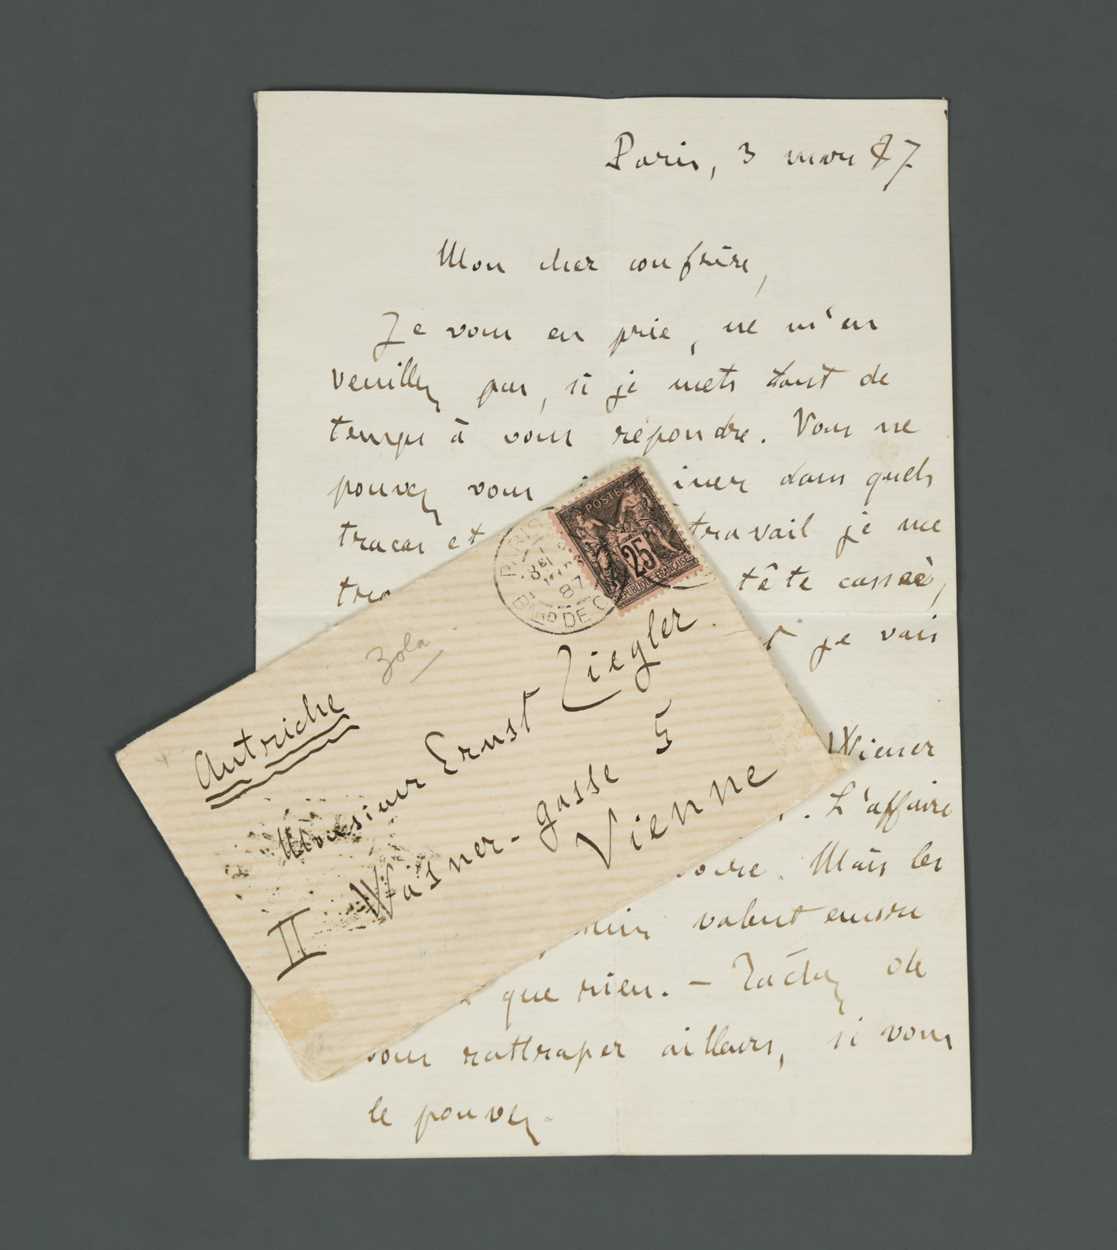 Paris, 3 mars 87
Mon cher confrère,
Je vous en prie, ne m'en
veuillez pas, si je mets tant de
temps à vous répondre. Vous ne
pouvez vous iner dans quels
tracas et travail je me
tête cassée,
je vais
Wiener
. L'affaire
Mais les
valent encore
que rien. — Tâchez de
vous rattraper ailleurs, si vous
le pouvez.
POSTE
25
REPUBLIQUE FRANÇAISE
PARIS
8E
3
87
BARD DE C
Zola
Autriche
Monsieur Ernst Ziegler
II Wasner-gasse 5
Vienne